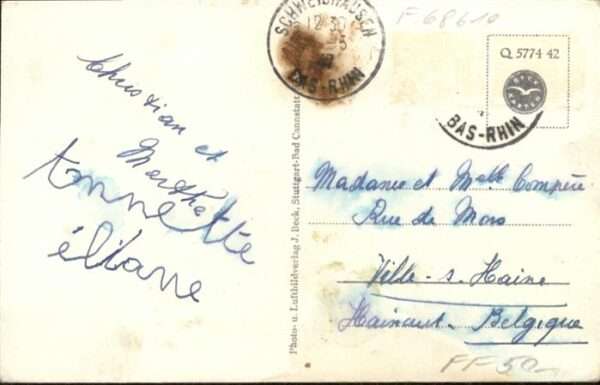 F 68610
SCHWEIGHAUSEN
12 30
5
BAS-RHIN
Q 5774 42
BAS-RHIN
Christian et
Marthe
Annette
éliane
Photo- u. Luftbildverlag J. Beck, Stuttgart-Bad Cannstatt
Madame et Melle Compère
Rue de Mons
Ville-s-Haine
Hainaut-Belgique
FF 50-